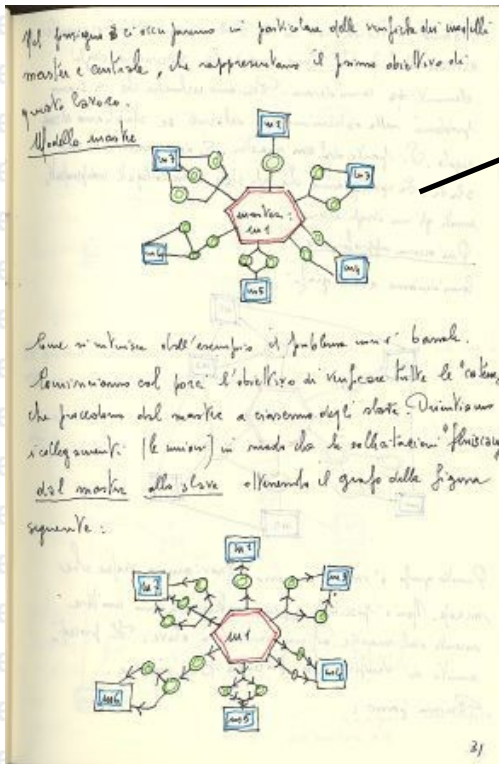 Nel proseguo ci occuperemo in particolare delle verifiche dei modelli
master e centrale, che rappresentano il primo obiettivo di
questo lavoro.
Modello master
m2
m7
m3
master:
m1
m6
m4
m5
Come si intuisce dall'esempio il problema non è banale.
Cominciamo col porci l'obiettivo di verificare tutte le "catene"
che procedono dal master a ciascuno degli slave. Orientiamo
i collegamenti (le unioni) in modo che le sollecitazioni "fluiscano"
dal master allo slave ottenendo il grafo della figura
seguente:
m2
m7
m3
m1
m6
m4
m5
31